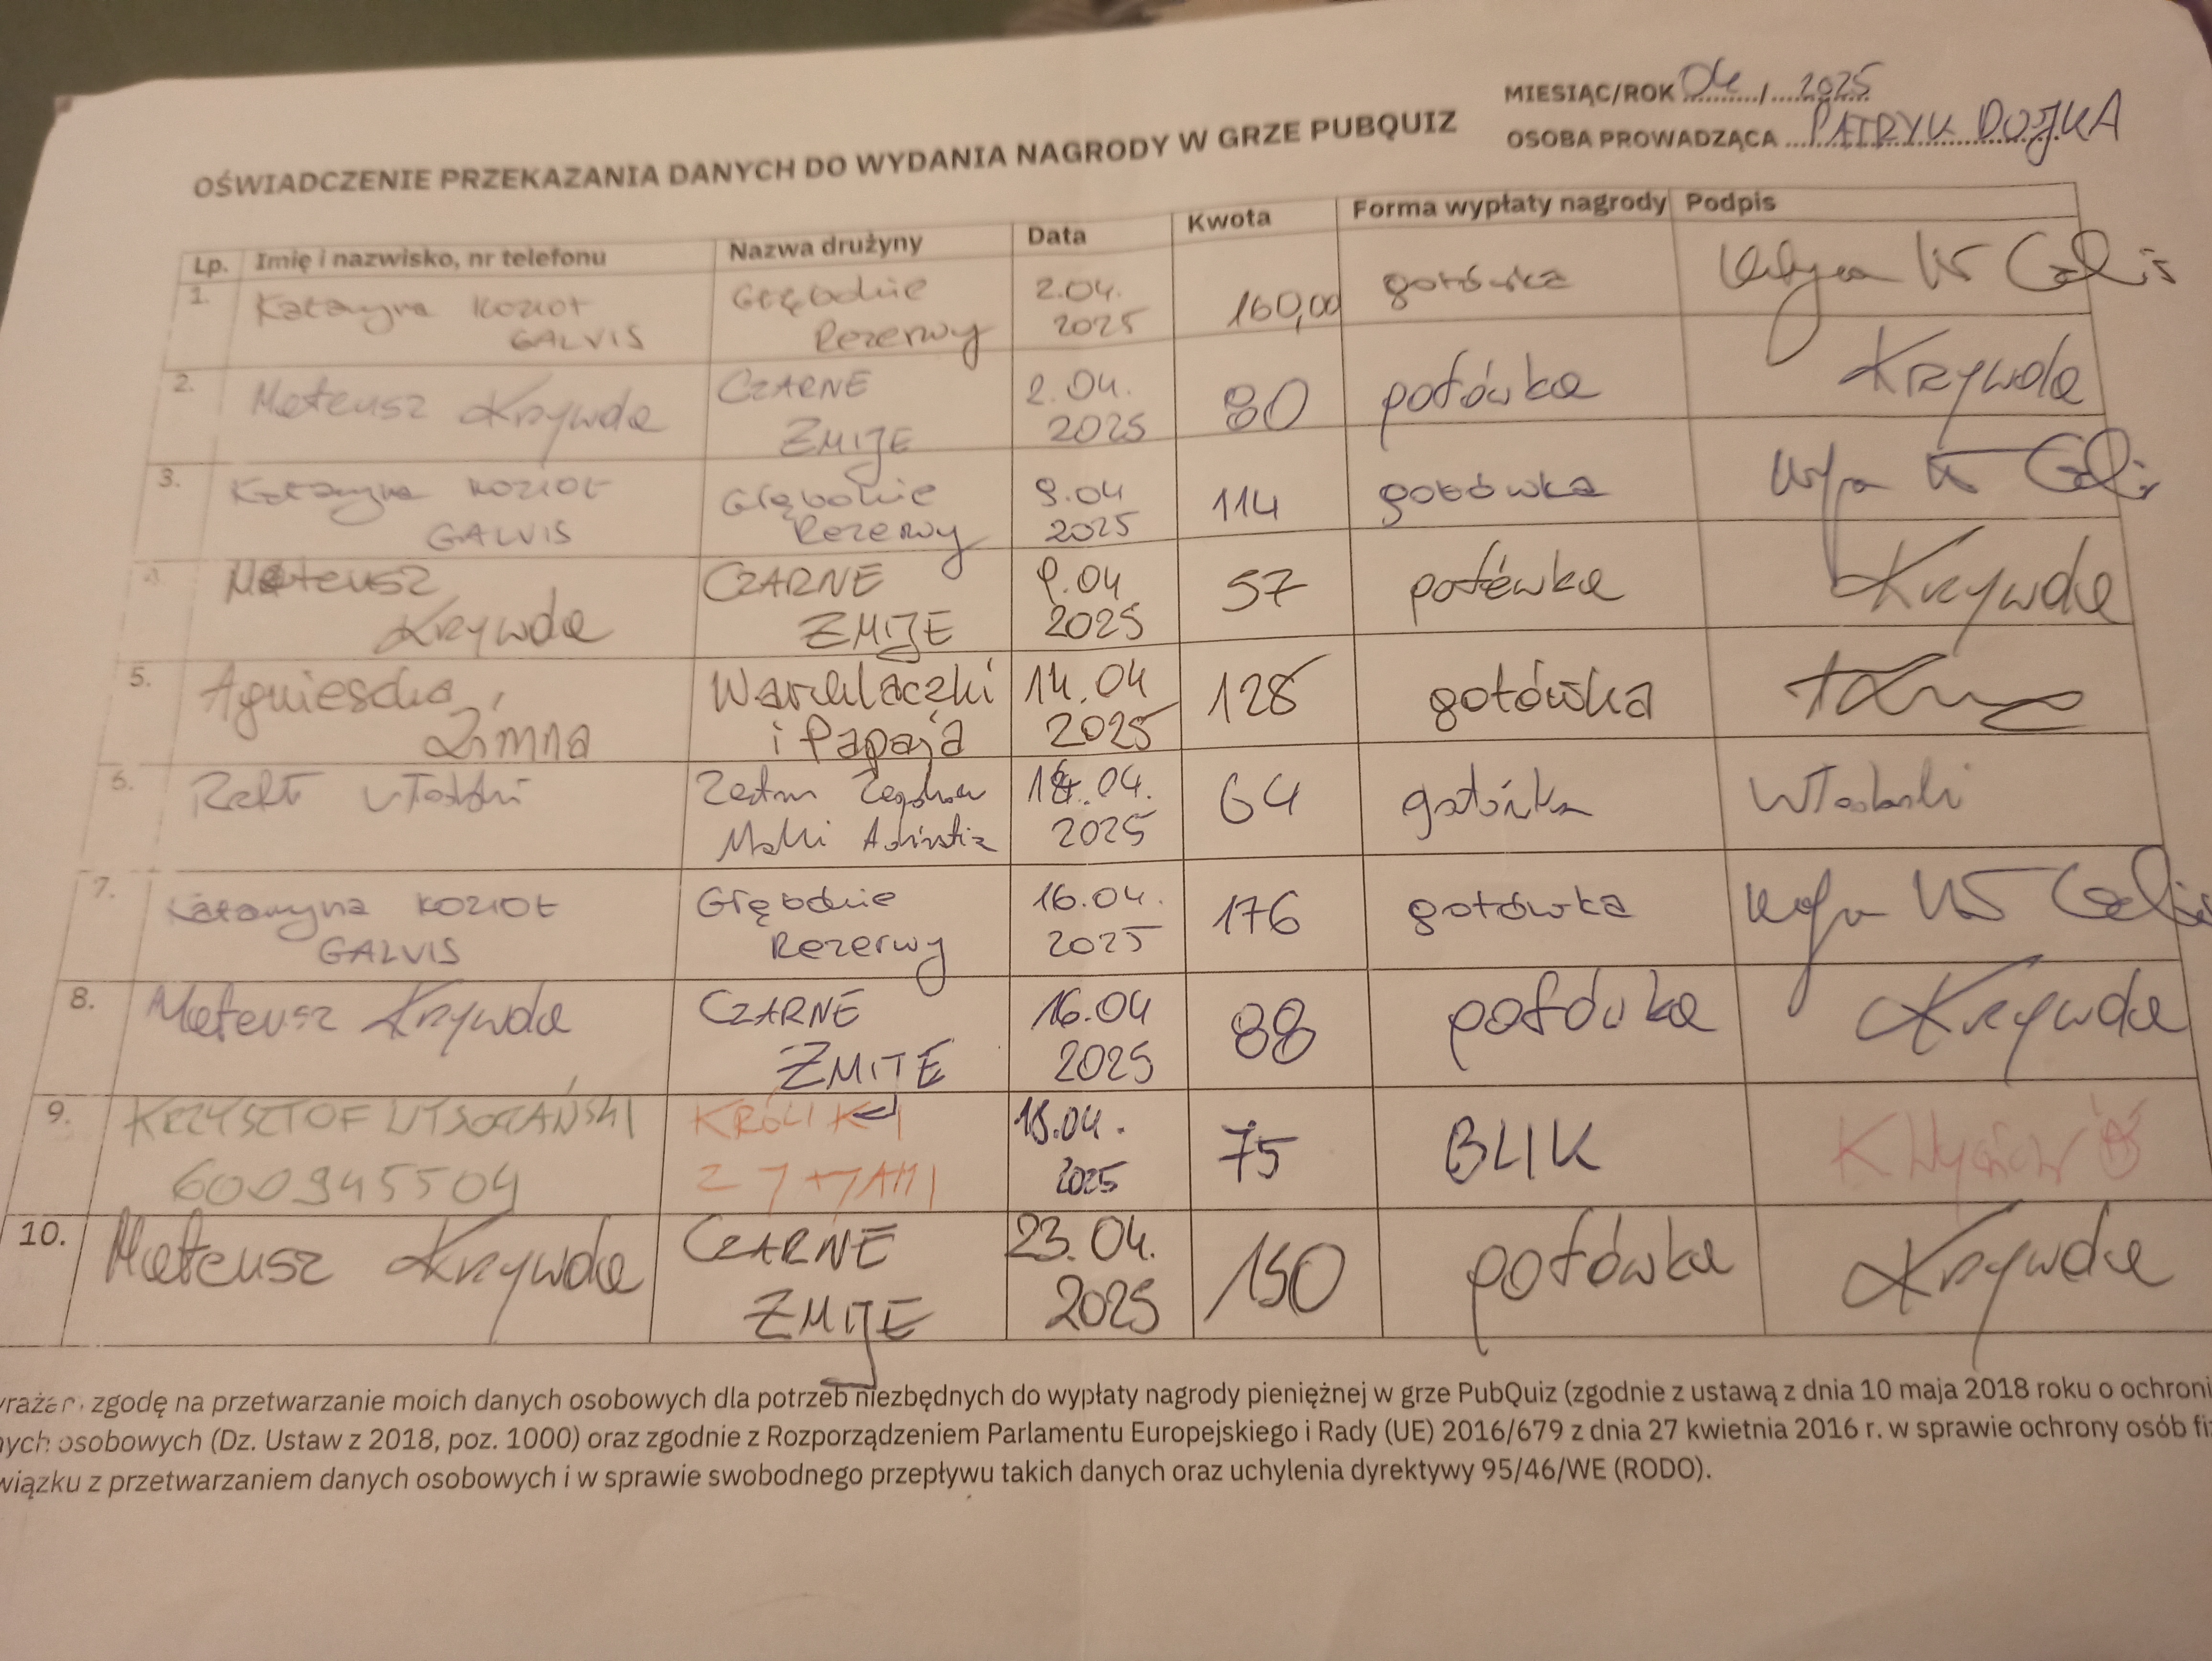 MIESIĄC/ROK 04 / 2025
OSOBA PROWADZĄCA PATRYK DOJKA
OŚWIADCZENIE PRZEKAZANIA DANYCH DO WYDANIA NAGRODY W GRZE PUBQUIZ
Lp. Imię i nazwisko, nr telefonu Nazwa drużyny Data Kwota Forma wypłaty nagrody Podpis
1. Katarzyna KOZIOŁ GALVIS Głębokie Rezerwy 2.04. 2025 160,00 gotówka
2. Mateusz Krzywda CZARNE ŻMIJE 2.04. 2025 80 gotówka Krzywda
3. Katarzyna KOZIOŁ GALVIS Głębokie Rezerwy 9.04 2025 114 gotówka
4. Mateusz Krzywda CZARNE ŻMIJE 9.04 2025 57 gotówka Krzywda
5. Agnieszka Zimna i Papaja 14.04 2025 128 gotówka
6. 2025 64 gotówka
7. Katarzyna KOZIOŁ GALVIS Głębokie Rezerwy 16.04. 2025 176 gotówka
8. Mateusz Krzywda CZARNE ŻMIJE 16.04 2025 88 gotówka Krzywda
9. KRZYSZTOF 600945504 KRÓLIKI Z 2025 75 BLIK
10. Mateusz Krzywda CZARNE ŻMIJE 23.04. 2025 150 gotówka Krzywda
zgodę na przetwarzanie moich danych osobowych dla potrzeb niezbędnych do wypłaty nagrody pieniężnej w grze PubQuiz (zgodnie z ustawą z dnia 10 maja 2018 roku o ochroni
ych osobowych (Dz. Ustaw z 2018, poz. 1000) oraz zgodnie z Rozporządzeniem Parlamentu Europejskiego i Rady (UE) 2016/679 z dnia 27 kwietnia 2016 r. w sprawie ochrony osób fi
wiązku z przetwarzaniem danych osobowych i w sprawie swobodnego przepływu takich danych oraz uchylenia dyrektywy 95/46/WE (RODO).